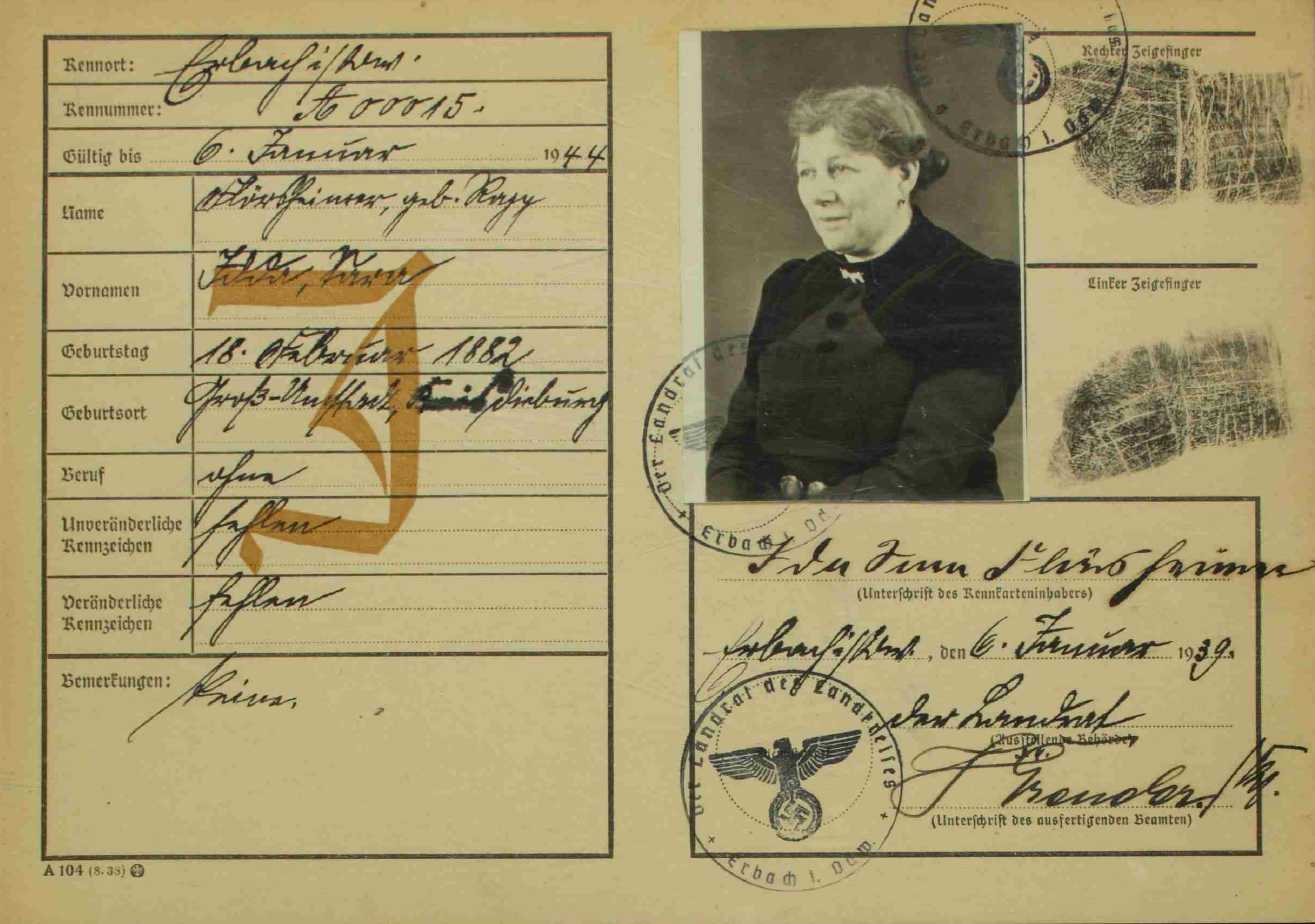 Kennort: Erbach i/Odw.
Kennummer: A 00015.
Gültig bis 6. Januar 1944
Name Flörsheimer, geb. Rapp
Vornamen Ida, Sara
Geburtstag 18. Februar 1882
Geburtsort Groß-Umstadt, Dieburg
Beruf ohne
Unveränderliche Kennzeichen fehlen
Veränderliche Kennzeichen fehlen
Bemerkungen: Keine.
J
A 104 (8. 38)
Erbach i. Odw.
Rechter Zeigefinger
Linker Zeigefinger
Der Landrat des
Erbach i. Od
Ida Sara Flörsheimer
(Unterschrift des Kennkarteninhabers)
Erbach i/Odw., den 6. Januar 1939.
Der Landrat
(Ausstellende Behörde)
(Unterschrift des ausfertigenden Beamten)
Der Landrat des Landkreises
Erbach i. Odw.